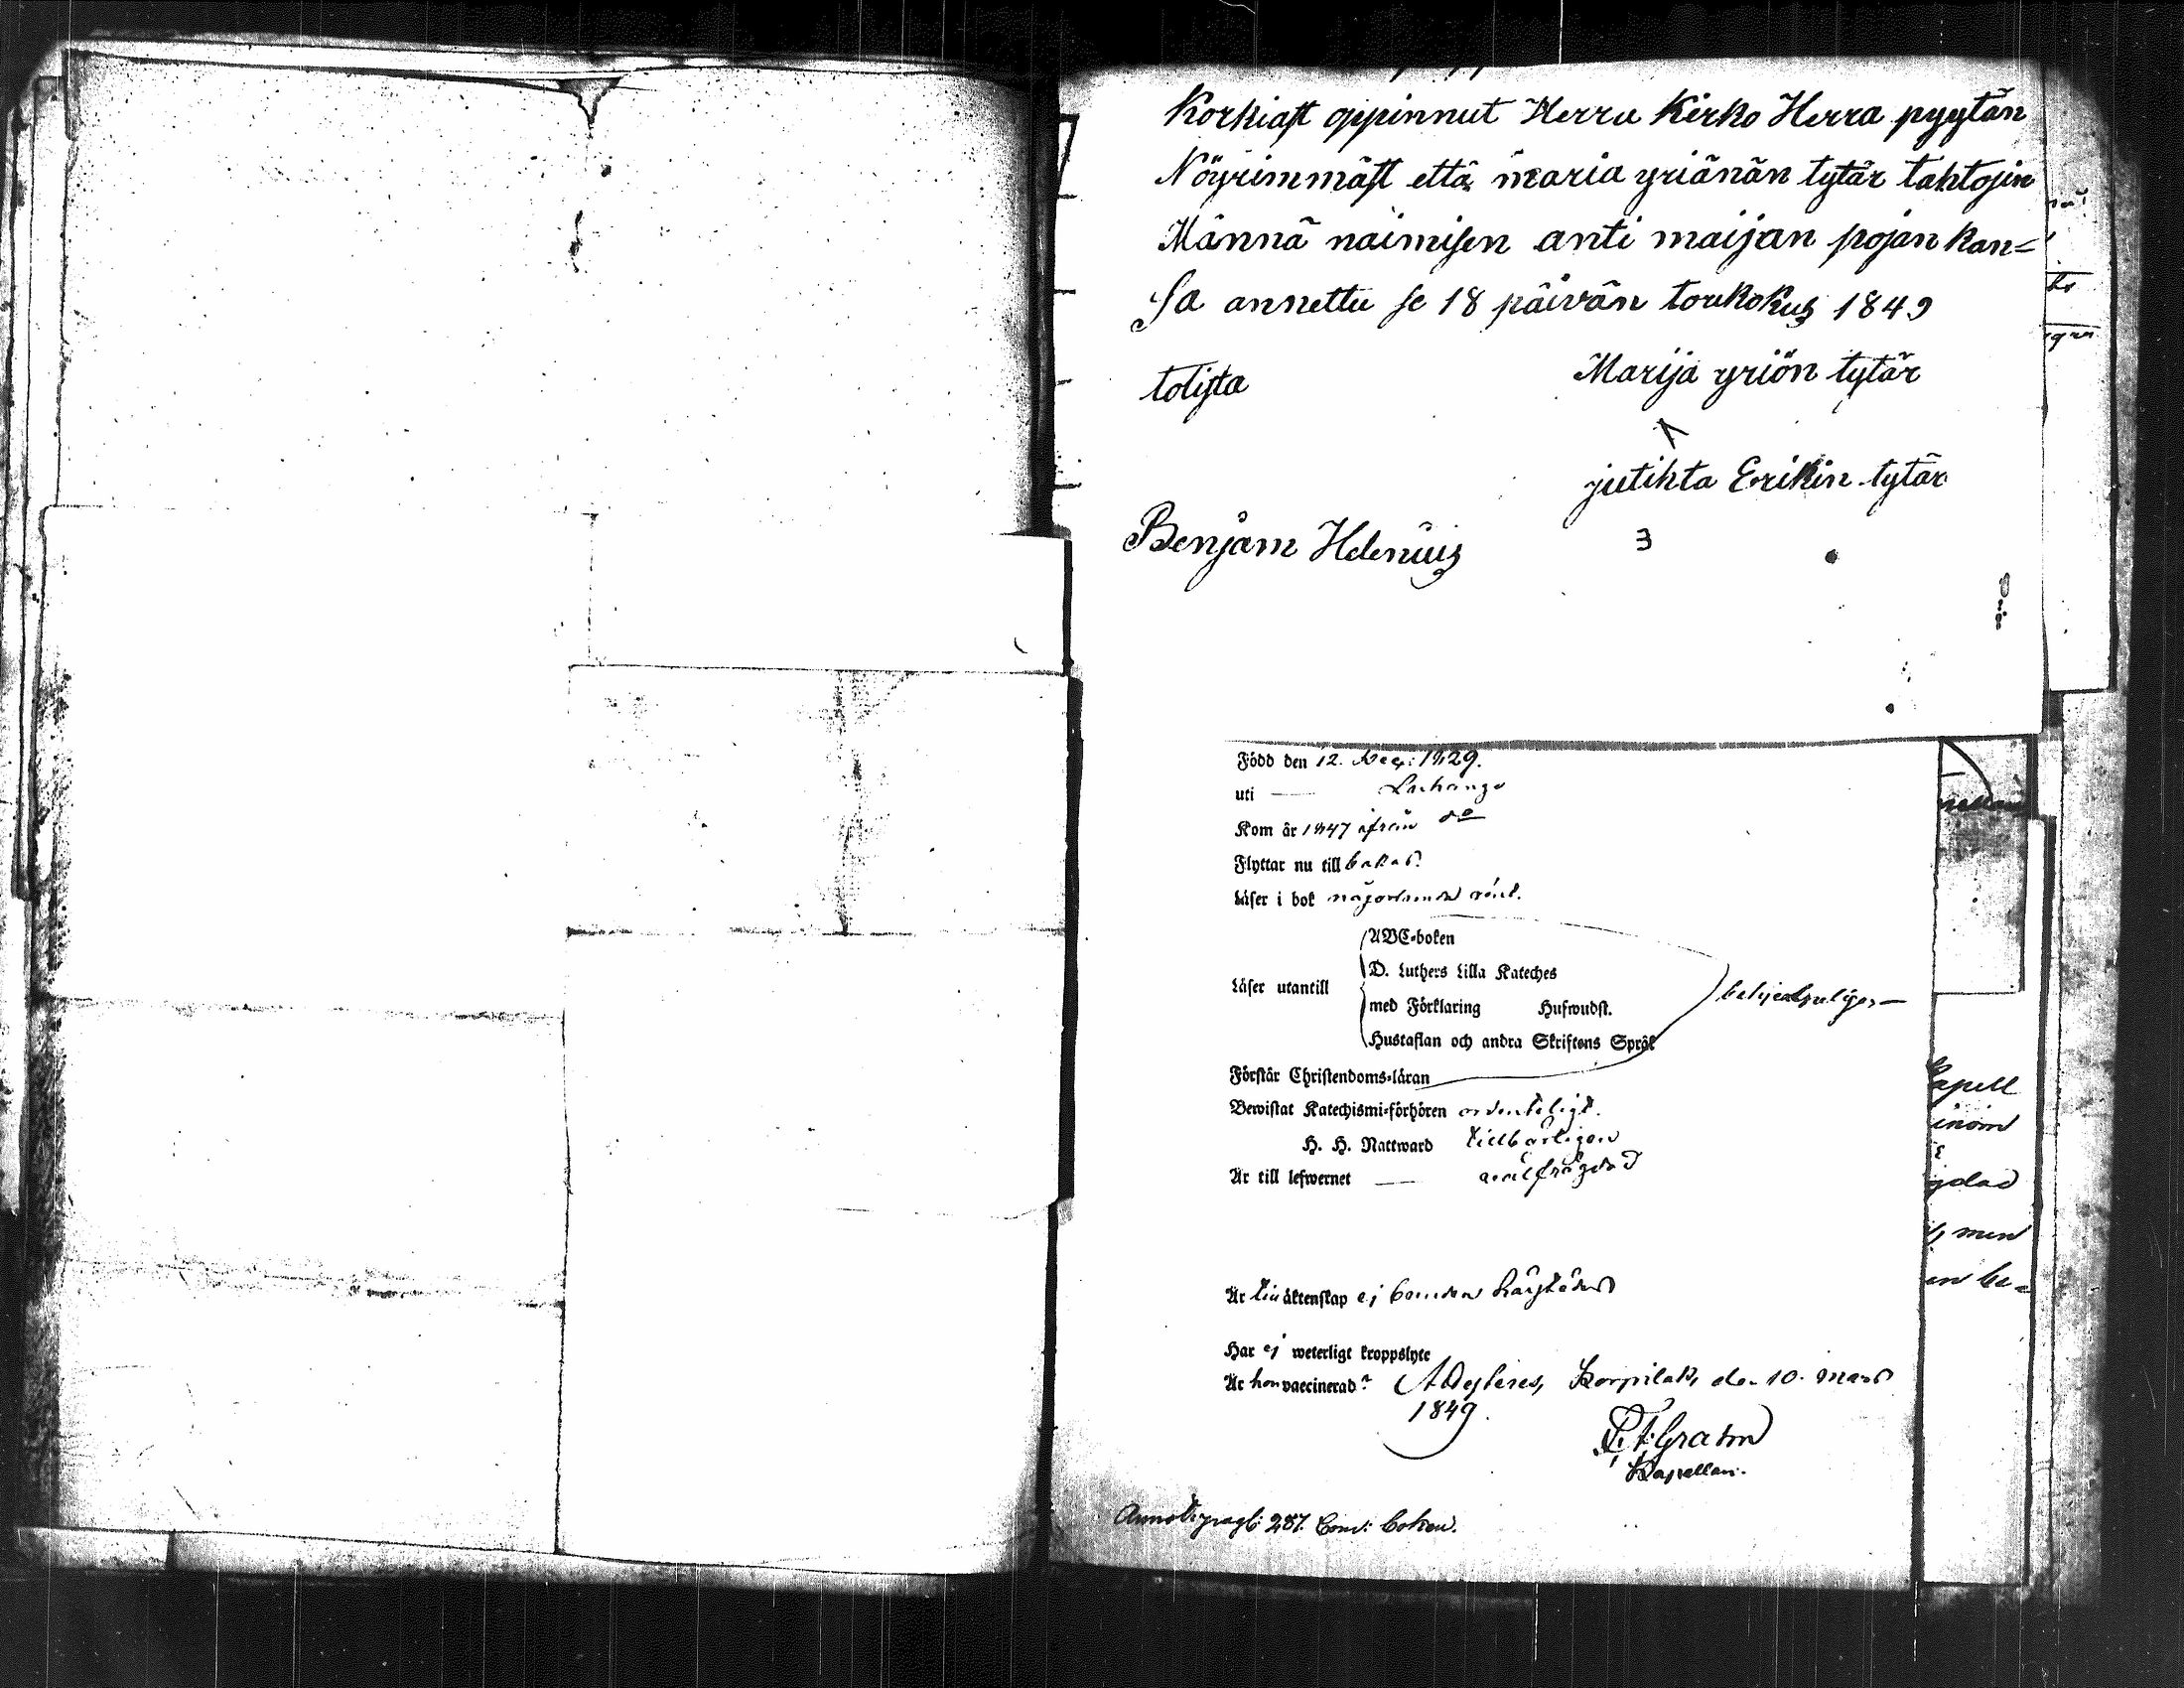 Korkiast oppinnut Herra Kirko Herra pyytän
Nöyrimmäst että maria yriänän tytär tahtojin
Männä naimisen anti maijan pojan kan=
sa annettu se 18 päivän toukokus 1849
tolista
Marija yriön tytär
jutihta Erikin tytär
Benjam Helenius
Född den 12. Dec: 1829.
uti —
Kom år 1847 ifrån do
Flyttar nu till bakas.
Läser i bok någorlunda rent.
Läser utantill
ABC-boken
D. Luthers Lilla Kateches
med Förklaring Hufwudst.
Hustaflan och andra Skriftens Språk
Förstår Christendoms-läran
Bewistat Katechismi-förhören ordenteligt.
H. H. Nattward tillbörligen
Är till lefwernet — wälfrägdad
Är till äktenskap ej
Har ej weterligt kroppslyte
Är hon vaccinerad?
Korpilaks, den 10. Mars
1849.
Kapellan.
287. boken.
Kapell
inom
gdad
men
en be=